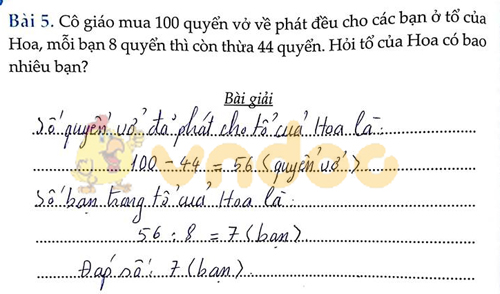 Bài 5. Cô giáo mua 100 quyển vở về phát đều cho các bạn ở tổ của
Hoa, mỗi bạn 8 quyển thì còn thừa 44 quyển. Hỏi tổ của Hoa có bao
nhiêu bạn?
Bài giải
Số quyển vở đã phát cho tổ của Hoa là:
100 - 44 = 56 (quyển vở)
Số bạn trong tổ của Hoa là:
56 : 8 = 7 (bạn)
Đáp số: 7 (bạn)
vndoc